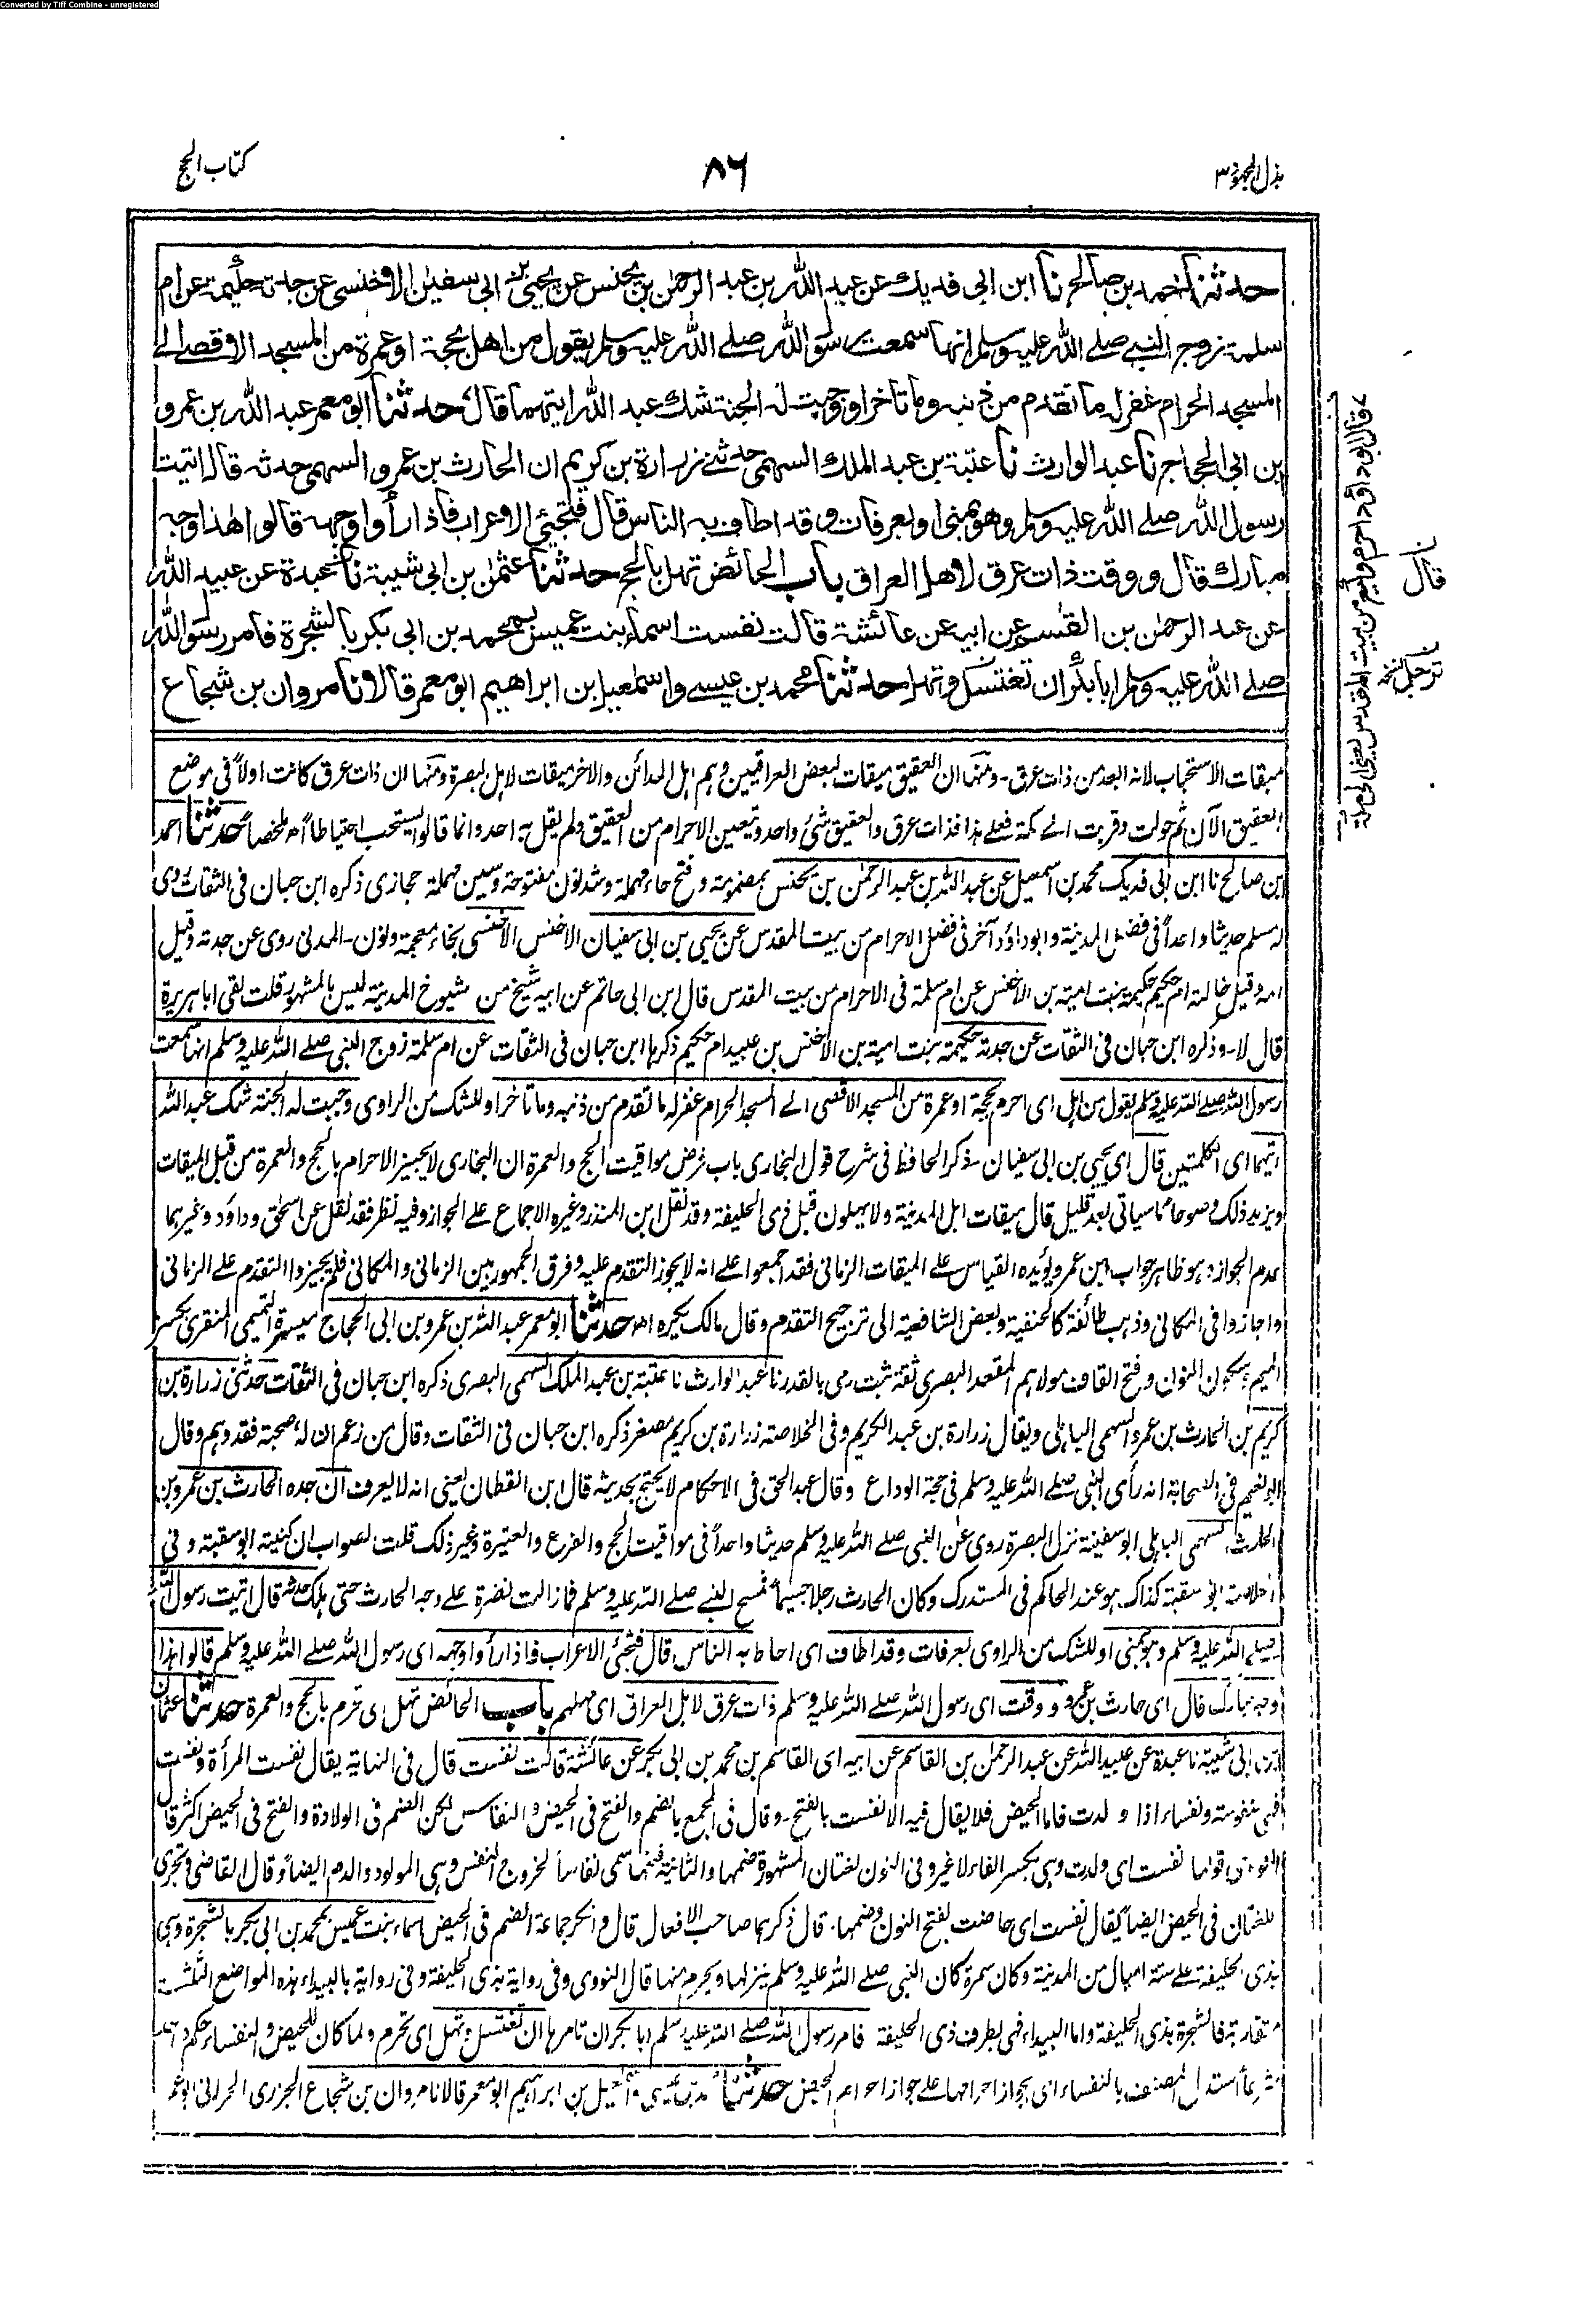 Converted by Tiff Combine - unregistered
بذل المجهود ٣
٨٦
كتاب الحج
حدثنا احمد بن صالح نا ابن ابى فديك عن عبد الله بن عبد الرحمن بن يحنس عن يحيى بن ابى سفين الاخنسى عن جدته حكيمة عن ام
سلمة زوج النبي صلے الله عليه وسلم انها سمعت رسول الله صلے الله عليه وسلم يقول من اهل بحجة او عمرة من المسجد الاقصے الے
المسجد الحرام غفر له ما تقدم من ذنبه وما تاخر او وجبت له الجنة شك عبد الله ايتهما قال حدثنا ابو معمر عبد الله بن عمرو
بن ابى الحجاج نا عبد الوارث نا عتبة بن عبد الملك السهمى حدثنے زرارة بن كريم ان الحارث بن عمرو السهمى حدثه قال اتيت
رسول الله صلے الله عليه وسلم وهو بمنى او بعرفات وقد اطاف به الناس قال فتجيئ الاعراب فاذا رأوا وجهه قالوا هذا وجه
مبارك قال ووقت ذات عرق لاهل العراق باب الحائض تهل بالحج حدثنا عثمن بن ابى شيبة نا عبدة عن عبيد الله
عن عبد الرحمن بن القسم عن ابيه عن عائشة قالت نفست اسماء بنت عميس بمحمد بن ابى بكر بالشجرة فامر رسول الله
صلے الله عليه وسلم ابا بكر ان تغتسل وتهل حدثنا محمد بن عيسے واسمعيل بن ابراهيم ابو معمر قالا نا مروان بن شجاع
قال
ترحل نسخة
ميقات الاستحباب لانه ابعد من ذات عرق - ومنها ان العقيق ميقات لبعض العراقيين وهم اهل المدائن والاخر ميقات لاهل البصرة ومنها ان ذات عرق كانت اولاً فى موضع
العقيق الآن ثم حولت وقربت الے مكة فعلے هذا فذات عرق والعقيق شئ واحد ويتعين الاحرام من العقيق ولم يقل به احد وانما قالوا يستحب احتياطاً اه ملخصاً حدثنا احمد
ابن صالح نا ابن ابى فديك محمد بن اسمعيل عن عبد الله بن عبد الرحمن بن يحنس بمضمومة وفتح حاء مهملة وشدة نون مفتوحة وسين مهملة حجازى ذكره ابن حبان فى الثقات روى
له مسلم حديثا واحداً فى فضل المدينة وابو داؤد آخر فى فضل الاحرام من بيت المقدس عن يحيى بن ابى سفيان الاخنس الاخنسى بخاء معجمة ونون - المدنى روى عن جدته وقيل
امه وقيل خالته ام حكيم حكيمة بنت امية بن الاخنس عن ام سلمة فى الاحرام من بيت المقدس قال ابن ابى حاتم عن ابيه شيخ من شيوخ المدينة ليس بالمشهور قلت لقى ابا هريرة
قال لا - وذكره ابن حبان فى الثقات عن جدته حكيمة بنت امية بن الاخنس بن عبيد ام حكيم ذكرها ابن حبان فى الثقات عن ام سلمة زوج النبي صلے الله عليه وسلم انها سمعت
رسول الله صلے الله عليه وسلم يقول من اهل اى احرم بحجة او عمرة من المسجد الاقصى الے المسجد الحرام غفر له ما تقدم من ذنبه وما تاخر او للشك من الراوى وجبت له الجنة شك عبد الله
ايتهما اى الكلمتين قال اى يحيى بن ابى سفيان - ذكر الحافظ فى شرح قول البخارى باب فرض مواقيت الحج والعمرة ان البخارى لا يجيز الاحرام بالحج والعمرة من قبل الميقات
ويزيد ذلك وضوحا ما سياتى بعد قليل قال ميقات اهل المدينة ولا يهلون قبل ذى الحليفة وقد نقل ابن المنذر وغيره الاجماع علے الجواز وفيه نظر فقد نقل عن اسحق وداود وغيرهما
عدم الجواز وهو ظاهر جواب ابن عمر ويؤيده القياس علے الميقات الزمانى فقد اجمعوا علے انه لا يجوز التقدم عليه وفرق الجمهور بين الزمانى والمكانى فلم يجيزوا التقدم علے الزمانى
واجازوا فى المكانى وذهب طائفة كالحنفية وبعض الشافعية الى ترجيح التقدم وقال مالك يكره اه حدثنا ابو معمر عبد الله بن عمرو بن ابى الحجاج ميسرة التميمى المنقرى بكسر
الميم وسكون النون وفتح القاف مولاهم المقعد البصرى ثقة ثبت رمى بالقدر نا عبد الوارث نا عتبة بن عبد الملك السهمى البصرى ذكره ابن حبان فى الثقات حدثنى زرارة بن
كريم بن الحارث بن عمرو السهمى الباهلى ويقال زرارة بن عبد الكريم وفى الخلاصة زرارة بن كريم مصغر ذكره ابن حبان فى الثقات وقال من زعم ان له صحبة فقد وهم وقال
ابو نعيم فى الصحابة انه رأى النبى صلے الله عليه وسلم فى حجة الوداع وقال عبد الحق فى الاحكام لا يحتج بحديثه قال ابن القطان يعنى انه لا يعرف ان جده الحارث بن عمرو بن
الحارث السهمى الباهلى ابو سفينة نزل البصرة روى عن النبى صلے الله عليه وسلم حديثا واحداً فى مواقيت الحج والفرع والعتيرة وغير ذلك قلت الصواب ان كنيته ابو سقبة وفى
الخلاصة ابو سقبة كذاك هو عند الحاكم فى المستدرك وكان الحارث رجلا جسيما فمسح النبے صلے الله عليه وسلم فما زالت نضرة علے وجه الحارث حتى هلك حدثه قال اتيت رسول الله
صلے الله عليه وسلم وهو بمنى او للشك من الراوى بعرفات وقد اطاف اى احاط به الناس قال فتجئ الاعراب فاذا رأوا وجهه اى رسول الله صلے الله عليه وسلم قالوا هذا
وجه مبارك قال اى حارث بن عمرو ووقت اى رسول الله صلے الله عليه وسلم ذات عرق لاهل العراق اى مهلهم باب الحائض تهل اى تحرم بالحج والعمرة حدثنا عثمان
ابن ابى شيبة نا عبدة عن عبيد الله عن عبد الرحمن بن القاسم عن ابيه اى القاسم بن محمد بن ابى بكر عن عائشة قالت نفست قال فى النهاية يقال نفست المرأة ونفست
فهى منفوسة ونفساء اذا ولدت فاما الحيض فلا يقال فيه الا نفست بالفتح - وقال فى المجمع بالضم والفتح فى الحيض والنفاس لكن الضم فى الولادة والفتح فى الحيض اكثر قال
النووى قولها نفست اى ولدت وهى بكسر الفاء لا غير وفى النون لغتان المشهورة ضمها والثانية فتحها سمى نفاساً لخروج النفس وهى المولود والدم ايضاً وقال القاضى وتجرى
اللغتان فى الحيض ايضاً يقال نفست اى حاضت بفتح النون وضمها. قال ذكرهما صاحب الافعال قال وانكر جماعة الضم فى الحيض اسماء بنت عميس بمحمد بن ابى بكر بالشجرة وهى
بذى الحليفة علے ستة اميال من المدينة وكان سمرة كان النبى صلے الله عليه وسلم ينزلها ويحرم منها قال النووى وفى رواية بذى الحليفة وفى رواية بالبيداء هذه المواضع الثلثة
متقاربة فالشجرة بذى الحليفة واما البيداء فهى بطرف ذى الحليفة فامر رسول الله صلے الله عليه وسلم ابا بكر ان تامرها ان تغتسل وتهل اى تحرم ولما كان للحيض والنفساء حكم
استدل المصنف بالنفساء اى بجواز احرامها علے جواز احرام الحيض حدثنا محمد بن عيسى واسمعيل بن ابراهيم ابو معمر قالا نا مروان بن شجاع الجزرى الحرانى ابو